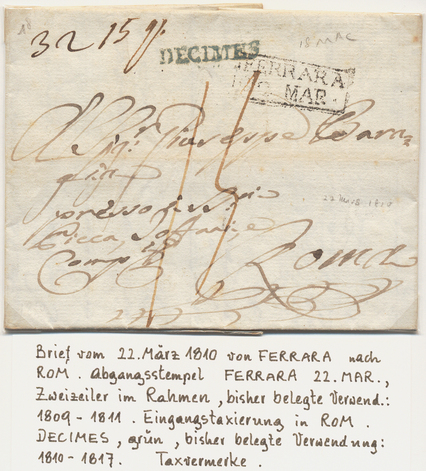 32 15 gi
DECIMES
18 MAC
FERRARA
MAR.
Al Sig.r Giuseppe Barn=
presso li SS.ri
Zicca, Soffani, e
Comp.i Roma
22 März 1810
Brief vom 22. März 1810 von FERRARA nach
ROM. Abgangsstempel FERRARA 22. MAR.,
Zweizeiler im Rahmen, bisher belegte Verwend.:
1809 - 1811. Eingangstaxierung in ROM.
DECIMES, grün, bisher belegte Verwendung:
1810 - 1817. Taxvermerke.